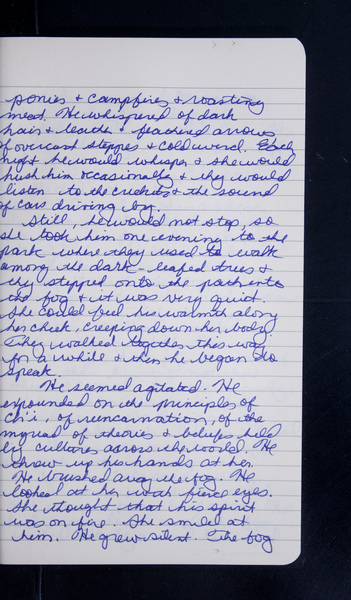 ponies & campfires & roasting
meat. He whispered of dark
hair & leather & feathered arrows
of overcast steppes & cold wind. Each
night he would whisper & she would
hush him occasionally & they would
listen to the crickets & the sound
of cars driving by.
Still, he would not stop, so
she took him one evening to the
park where they used to walk
among the dark-leafed trees &
they stepped onto the path into
the fog & it was very quiet.
She could feel his warmth along
her cheek, creeping down her body.
They walked together this way
for a while & then he began to
speak.
He seemed agitated. He
expounded on the principles of
ch'i, of reincarnation, of the
myriad of theories & beliefs held
by cultures across the world. He
threw up his hands at her.
He brushed away the fog. He
looked at her with fierce eyes.
She thought that his spirit
was on fire. She smiled at
him. He grew silent. The fog